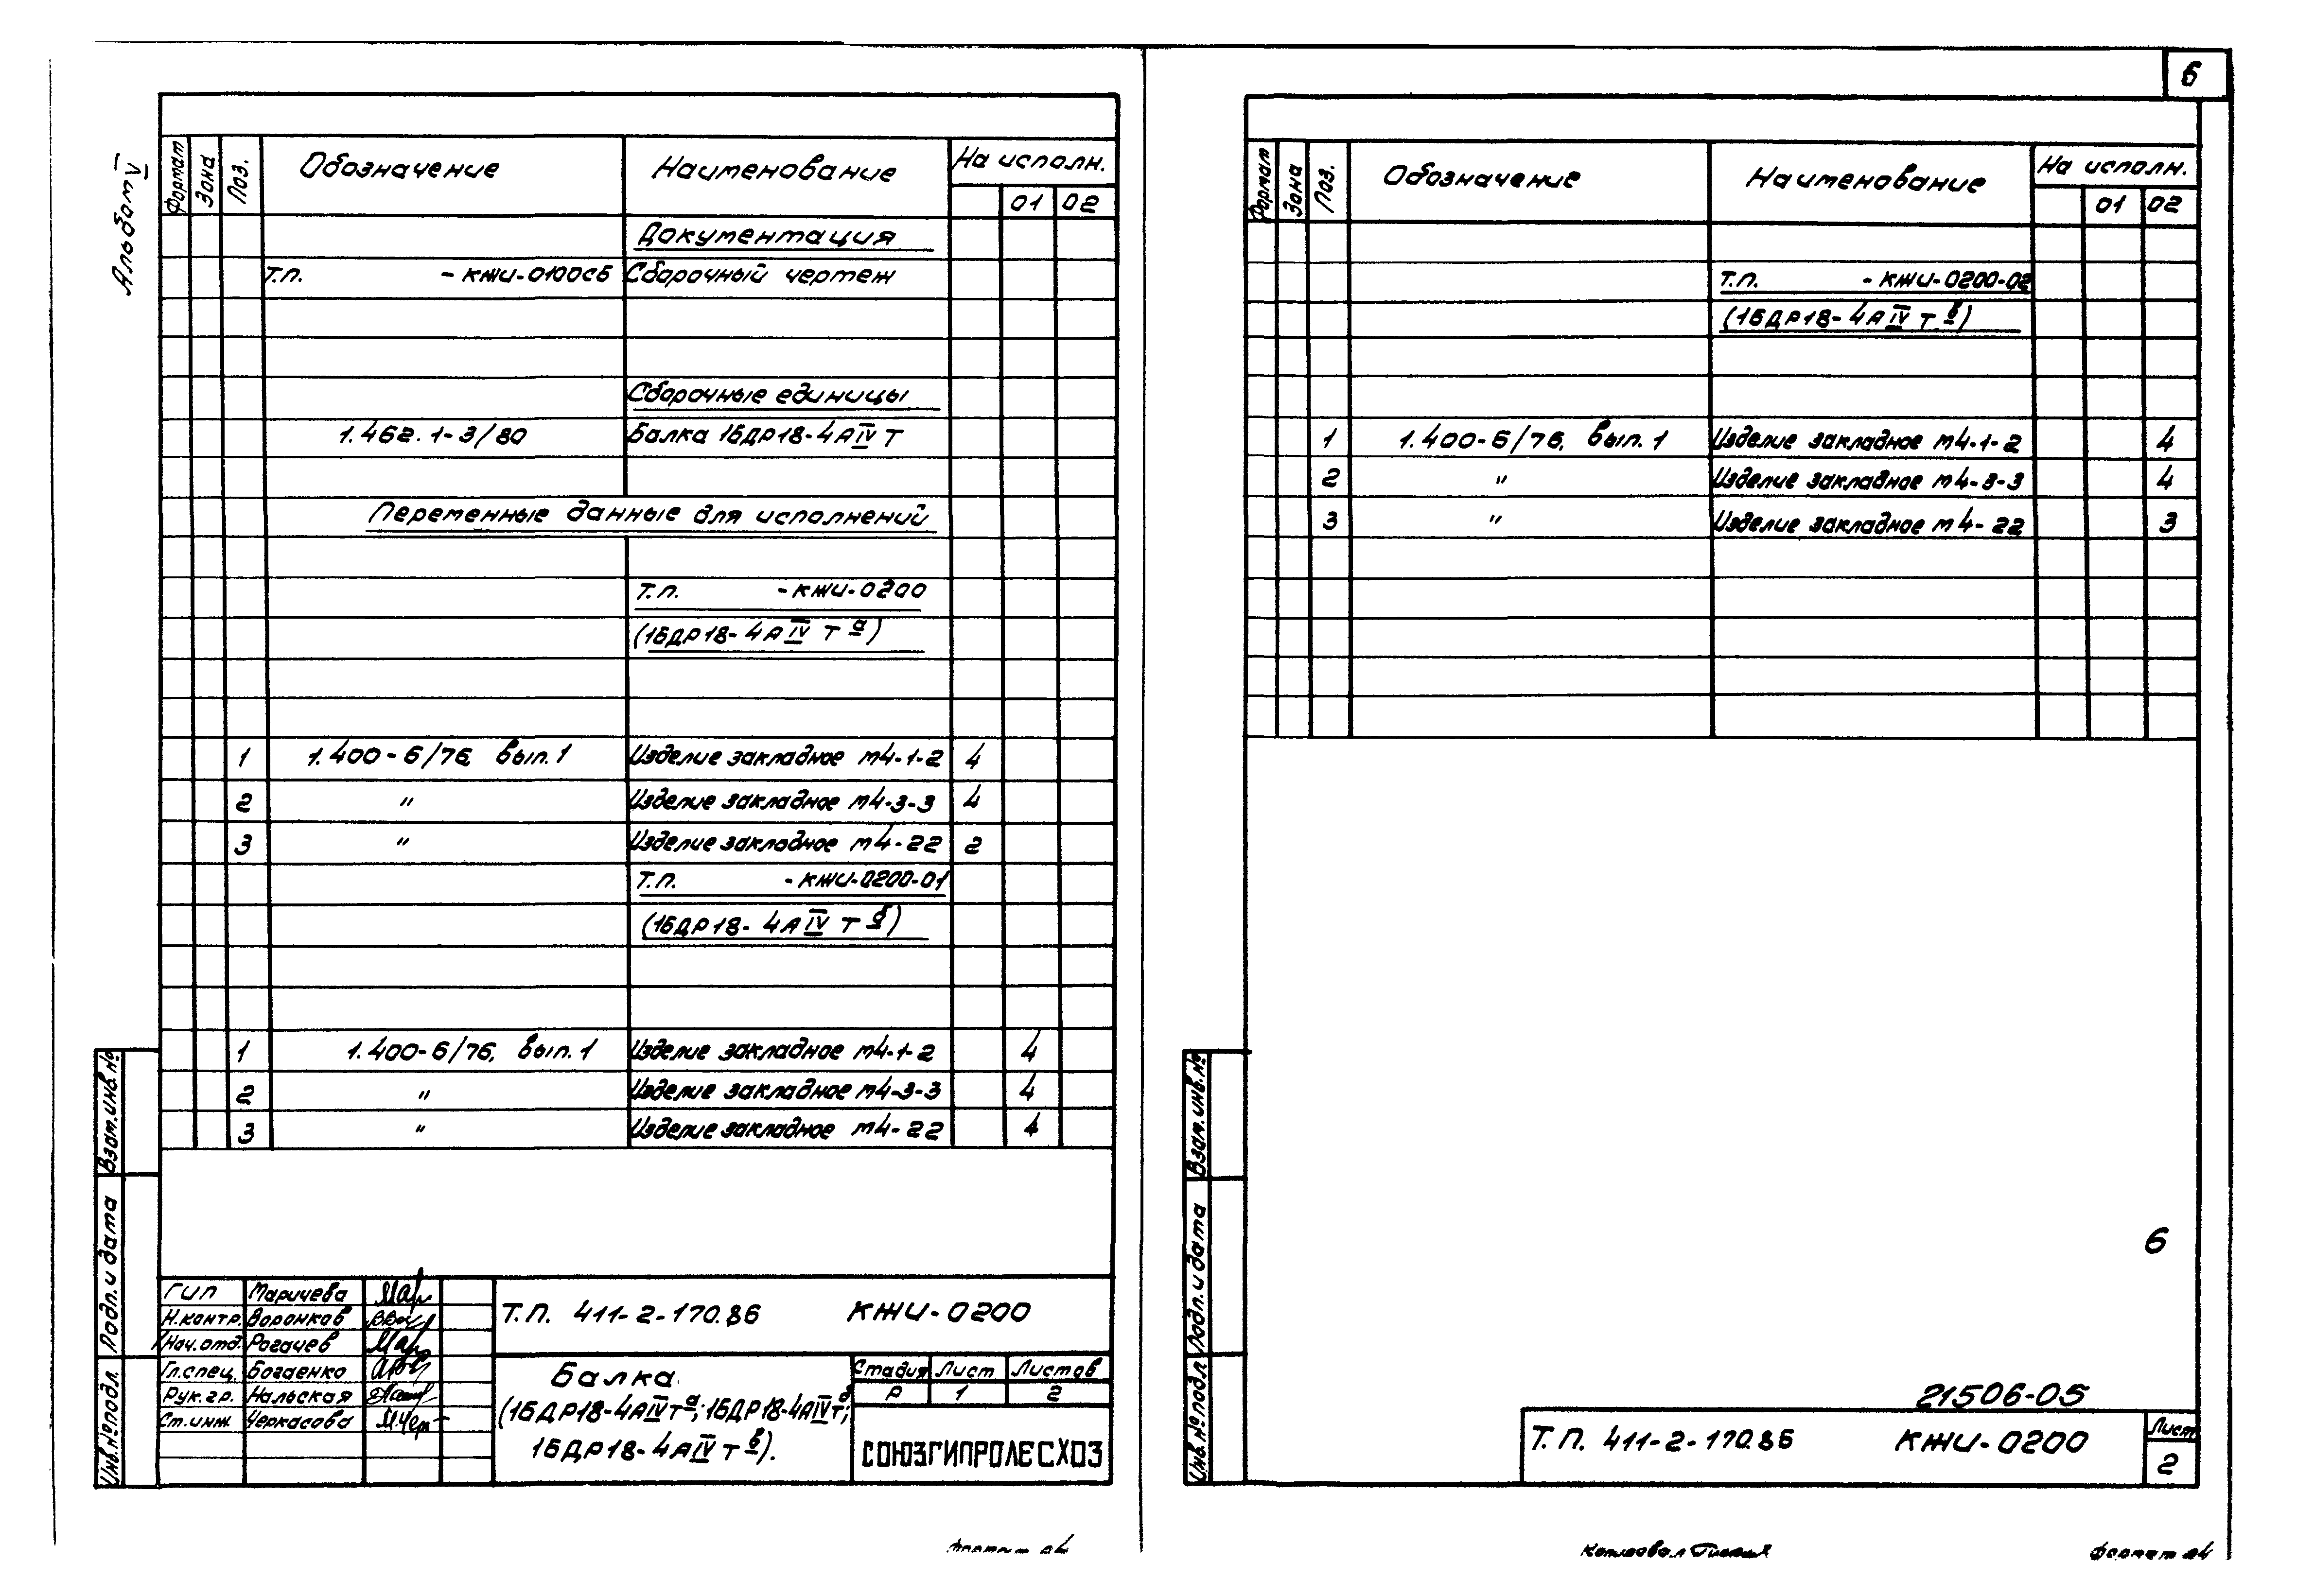 Альбом V
Формат Зона Поз. Обозначение Наименование На исполн.
01 02
Документация
Т.П. -КЖИ-0100СБ Сборочный чертеж
Сборочные единицы
1.462.1-3/80 Балка 1БДР18-4АIVТ
Переменные данные для исполнений
Т.П. -КЖИ-0200
(1БДР18-4АIVТ а)
1 1.400-6/76, вып.1 Изделие закладное М4-1-2 4
2 " Изделие закладное М4-3-3 4
3 " Изделие закладное М4-22 2
Т.П. -КЖИ-0200-01
(1БДР18-4АIVТ б)
1 1.400-6/76, вып.1 Изделие закладное М4-1-2 4
2 " Изделие закладное М4-3-3 4
3 " Изделие закладное М4-22 4
Взам.инв.№
Подп. и дата
Инв.№подл.
ГИП Маричева
Н.контр. Воронков
Нач.отд. Рогачев
Гл.спец. Богаенко
Рук.гр. Нальская
Ст.инж. Черкасова
Т.П. 411-2-170.86 КЖИ-0200
Балка
(1БДР18-4АIVТ а; 1БДР18-4АIVТ б;
1БДР18-4АIVТ в).
Стадия Лист Листов
Р 1 2
СОЮЗГИПРОЛЕСХОЗ
Формат А4
6
Формат Зона Поз. Обозначение Наименование На исполн.
01 02
Т.П. -КЖИ-0200-02
(1БДР18-4АIVТ в)
1 1.400-6/76, вып.1 Изделие закладное М4-1-2 4
2 " Изделие закладное М4-3-3 4
3 " Изделие закладное М4-22 3
Взам.инв.№
Подп. и дата
Инв.№подл.
6
21506-05
Т.П. 411-2-170.86 КЖИ-0200
Лист
2
Копировал
Формат А4